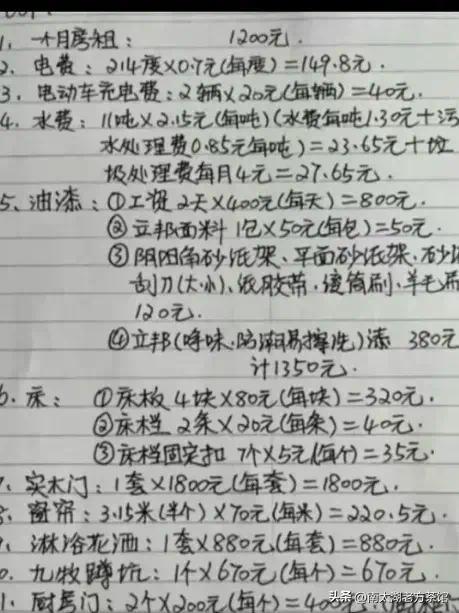 1、一个月房租： 1200元.
2、电费：214度×0.7元(每度)=149.8元.
3、电动车充电费：2辆×20元(每辆)=40元.
4、水费：11吨×2.15元(每吨)(水费每吨1.30元+污
水处理费0.85元每吨)=23.65元+垃
圾处理费每月4元=27.65元.
5、油漆：①工资 2天×400元(每天)=800元.
②立邦面料 1包×50元(每包)=50元.
③阴阳角砂纸架、平面砂纸架、砂
刮刀(大小)、纸胶带、滚筒刷、羊毛
120元.
④立邦(净味.防潮易擦洗)漆 380元
计1350元.
6、床：①床板 4块×80元(每块)=320元.
②床档 2条×20元(每条)=40元.
③床档固定扣 7个×5元(每个)=35元.
、实木门：1套×1800元(每套)=1800元.
、窗帘：3.15米(半个)×70元(每米)=220.5元.
、淋浴花洒：1套×880元(每套)=880元.
0、九牧蹲坑：1个×670元(每个)=670元.
1、厨房门：2个×200元(每个)=40
头条 @南太湖老方茶馆